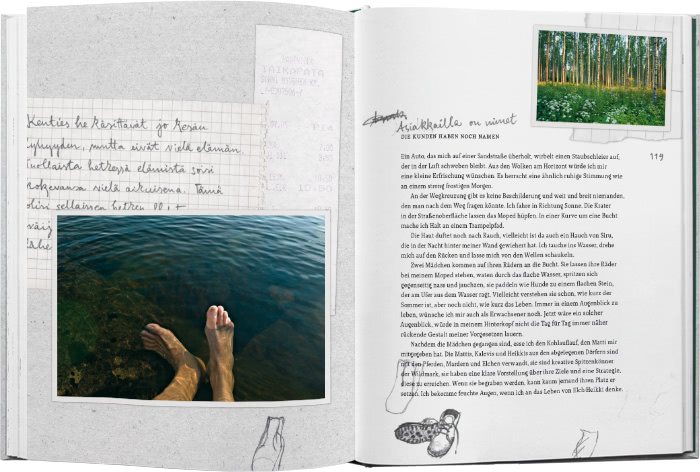 TAIKAPATA
Kenties he käsittävät jo kesän
lyhyyden, mutta eivät vielä elämän.
Tuollaista hetkessä elämistä soisi
kokevansa vielä aikuisena. Tämä
olisi sellainen hetki
Asiakkailla on nimet
DIE KUNDEN HABEN NOCH NAMEN
119
Ein Auto, das mich auf einer Sandstraße überholt, wirbelt einen Staubschleier auf,
der in der Luft schweben bleibt. Aus den Wolken am Horizont würde ich mir
eine kleine Erfrischung wünschen. Es herrscht eine ähnlich ruhige Stimmung wie
an einem streng frostigen Morgen.
An der Wegkreuzung gibt es keine Beschilderung und weit und breit niemanden,
den man nach dem Weg fragen könnte. Ich fahre in Richtung Sonne. Die Krater
in der Straßenoberfläche lassen das Moped hüpfen. In einer Kurve um eine Bucht
mache ich Halt an einem Trampelpfad.
Die Haut duftet noch nach Rauch, vielleicht ist da auch ein Hauch von Siru,
die in der Nacht hinter meiner Wand gewiehert hat. Ich tauche ins Wasser, drehe
mich auf den Rücken und lasse mich von den Wellen schaukeln.
Zwei Mädchen kommen auf ihren Rädern an die Bucht. Sie lassen ihre Räder
bei meinem Moped stehen, waten durch das flache Wasser, spritzen sich
gegenseitig nass und jauchzen, sie paddeln wie Hunde zu einem flachen Stein,
der am Ufer aus dem Wasser ragt. Vielleicht verstehen sie schon, wie kurz der
Sommer ist, aber noch nicht, wie kurz das Leben. Immer in einem Augenblick zu
leben, wünsche ich mir auch als Erwachsener noch. Jetzt wäre ein solcher
Augenblick, würde in meinem Hinterkopf nicht die Tag für Tag immer näher
rückende Gestalt meiner Vorgesetzten lauern.
Nachdem die Mädchen gegangen sind, esse ich den Kohlauflauf, den Matti mir
mitgegeben hat. Die Mattis, Kalevis und Heikkis aus den abgelegenen Dörfern sind
mit den Pferden, Mardern und Elchen verwandt, sie sind kreative Spitzenkönner
der Wildmark, sie haben eine klare Vorstellung über ihre Ziele und eine Strategie,
diese zu erreichen. Wenn sie begraben werden, kann kaum jemand ihren Platz er
setzen. Ich bekomme feuchte Augen, wenn ich an das Leben von Elch-Heikki denke.